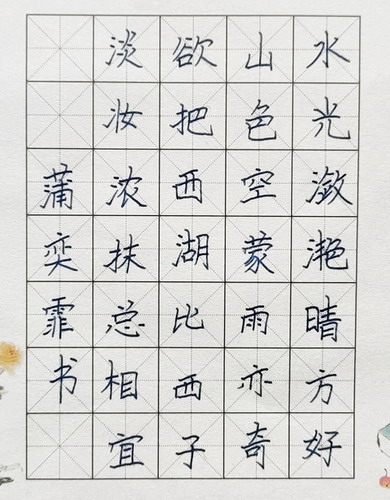 水光潋滟晴方好
山色空蒙雨亦奇
欲把西湖比西子
淡妆浓抹总相宜
蒲奕霏书